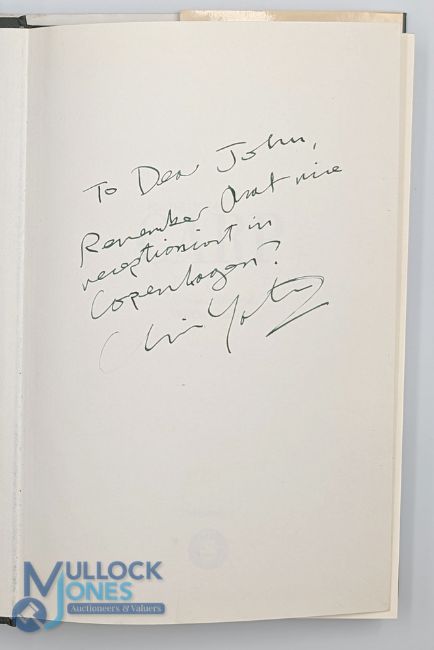 To Dear John,
Remember that nice
receptionist in
Copenhagen?
Chris Yates
MULLOCK
JONES
Auctioneers & Valuers